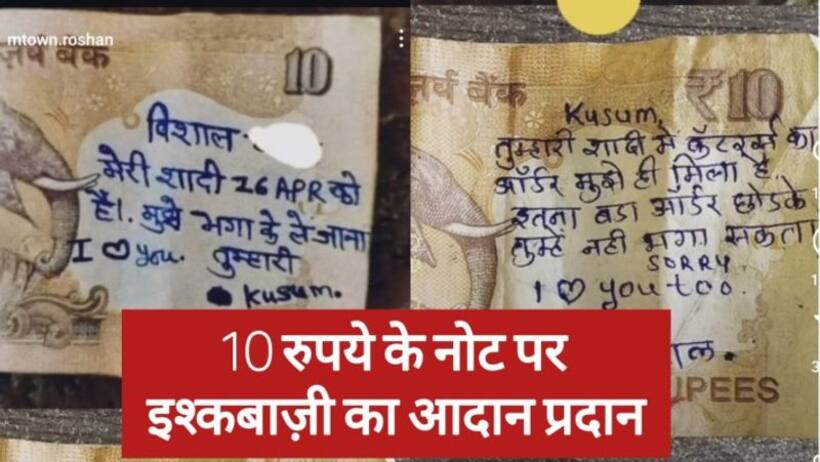 mtown.roshan
ज़र्व बैंक
10
विशाल
मेरी शादी 26 APR को
है।. मुझे भगा के ले जाना
I ♡ you. तुम्हारी
Kusum.
ज़र्व बैंक
₹10
Kusum,
तुम्हारी शादी में कॅटरर्स का
ऑर्डर मुझे ही मिला है.
इतना बडा ऑर्डर छोडके
तुम्हें नही भगा सकता
SORRY
I ♡ you too.
RUPEES
10 रुपये के नोट पर
इश्कबाज़ी का आदान प्रदान